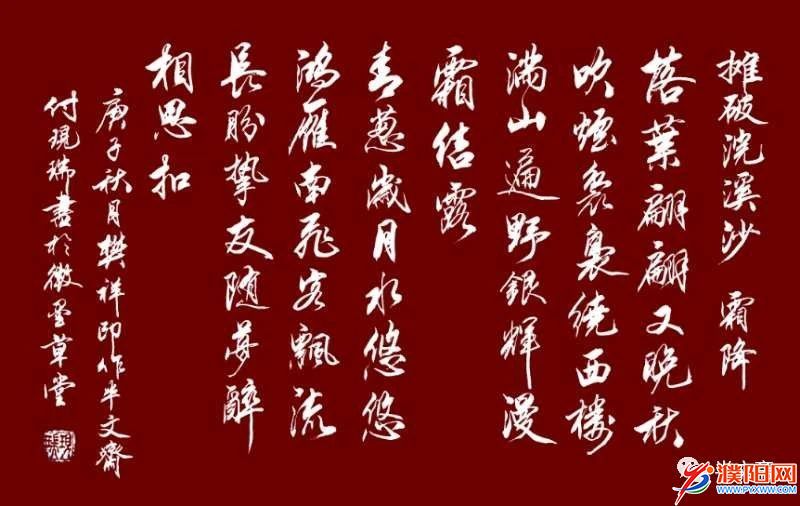 摊破浣溪沙 霜降
落葉翩翩又晚秋
吹煙裊裊繞西樓
满山遍野銀輝漫
霜结露
青葱歲月水悠悠
鸿雁南飛客飄流
長盼挚友随夢醉
相思扣
庚子秋月樊祥印作半文齋
付現瑞書於徽墨草堂
濮阳网
WWW.PYXWW.COM